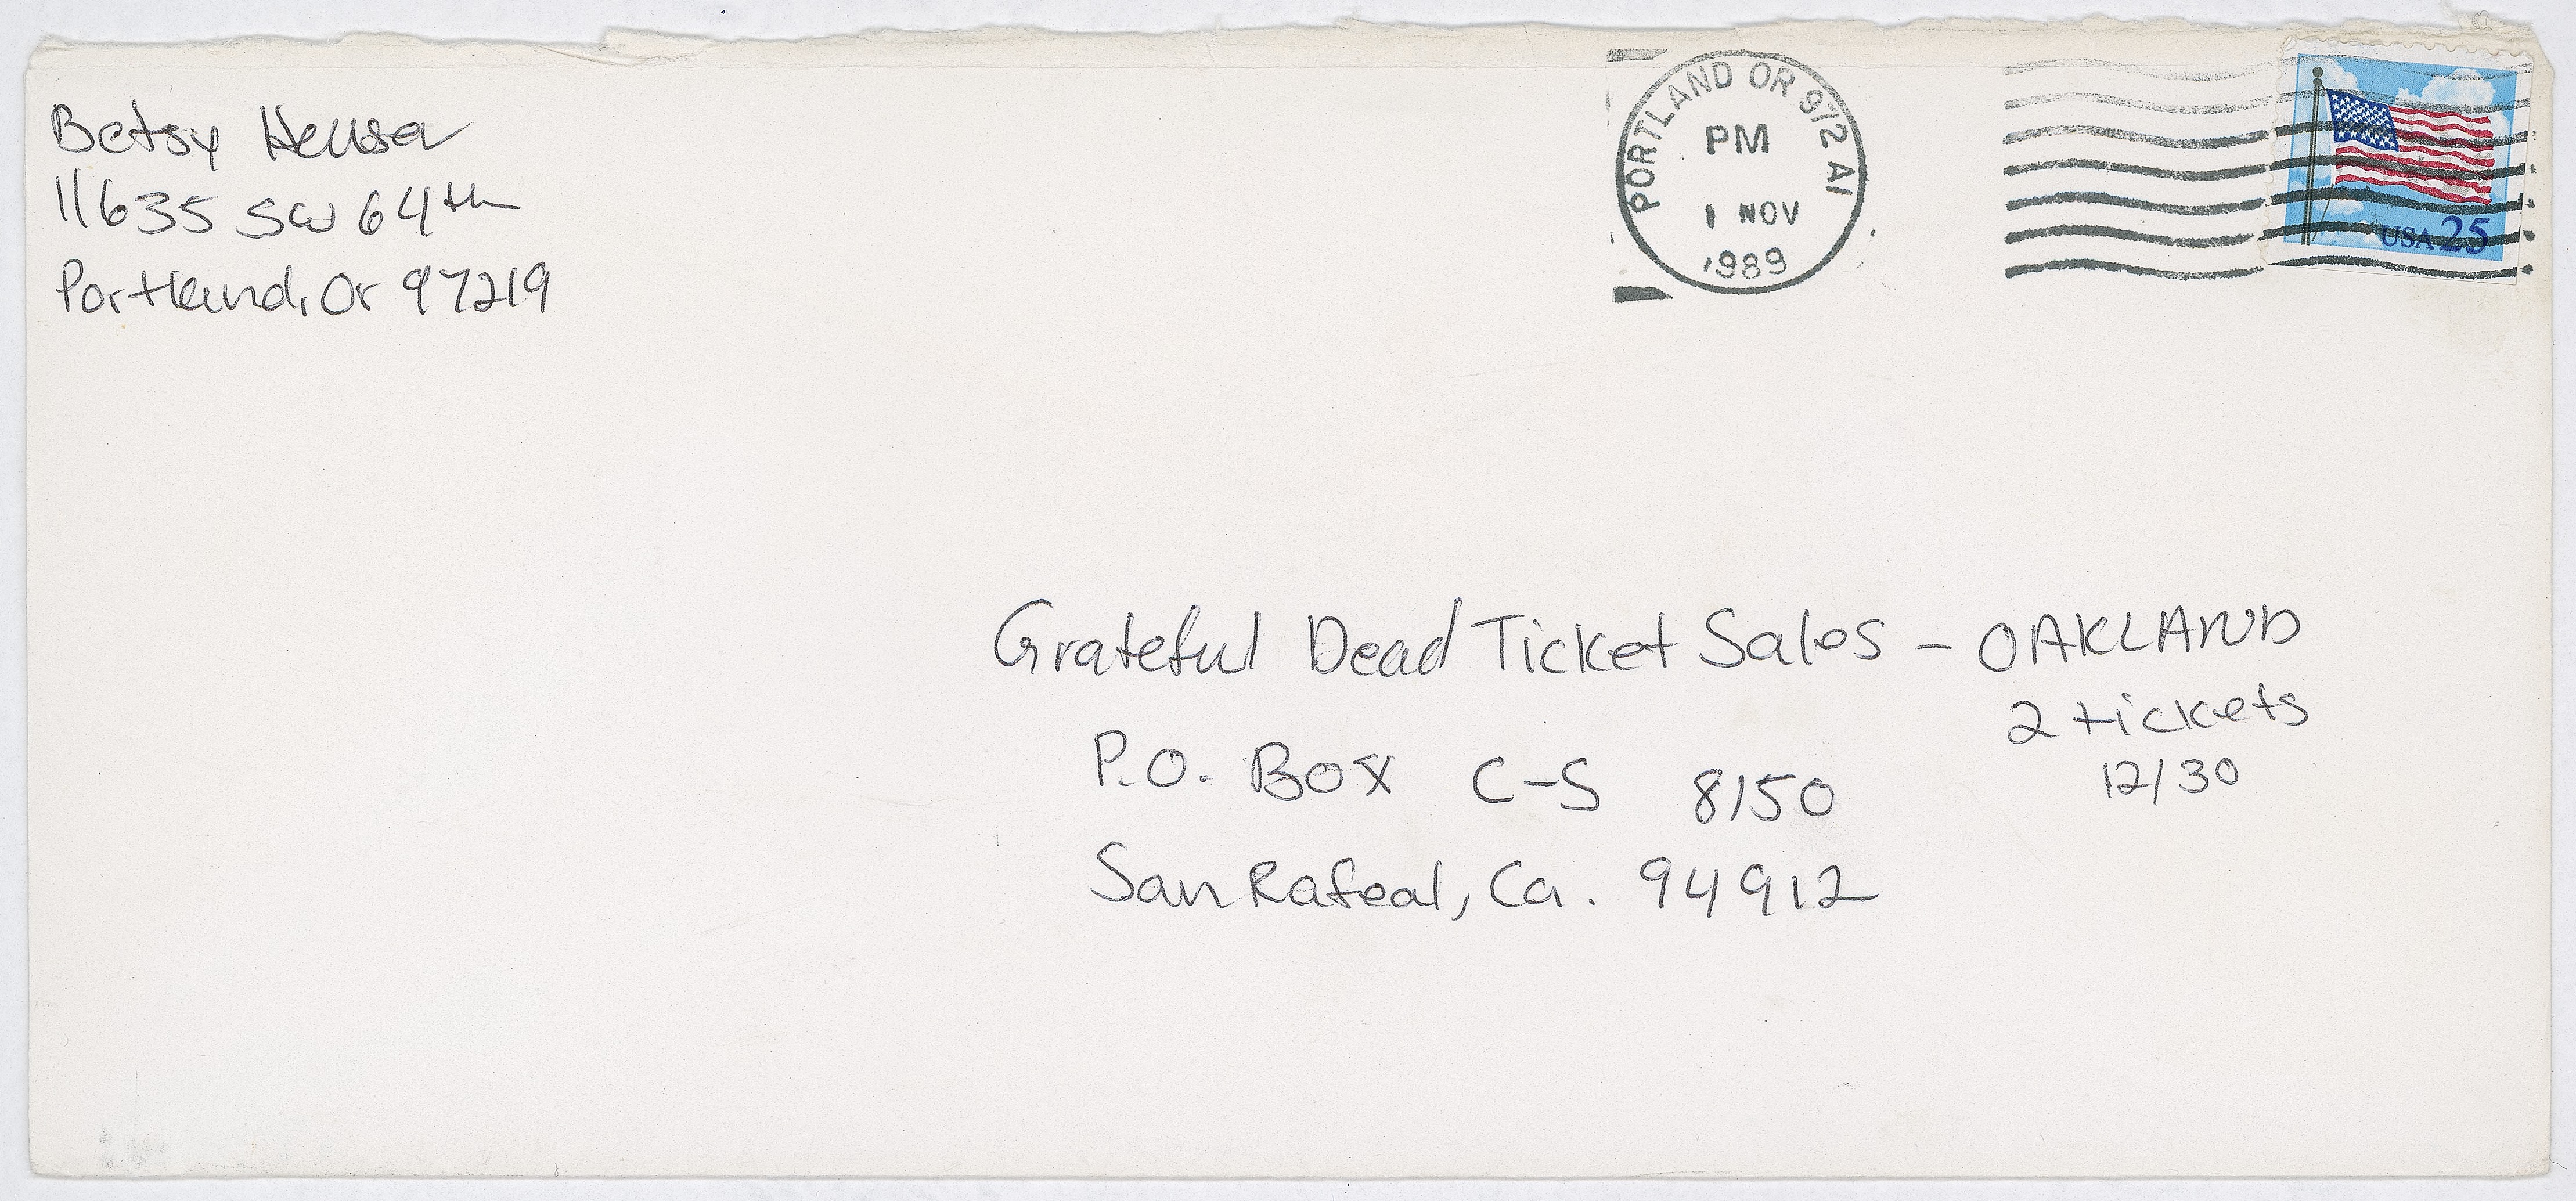 Betsy Heuser
11635 SW 64th
Portland, Or 97219
PORTLAND OR 972 A1
PM
1 NOV
1989
USA 25
Grateful Dead Ticket Sales - OAKLAND
2 tickets
12/30
P.O. Box C-S 8150
San Rafeal, Ca. 94912